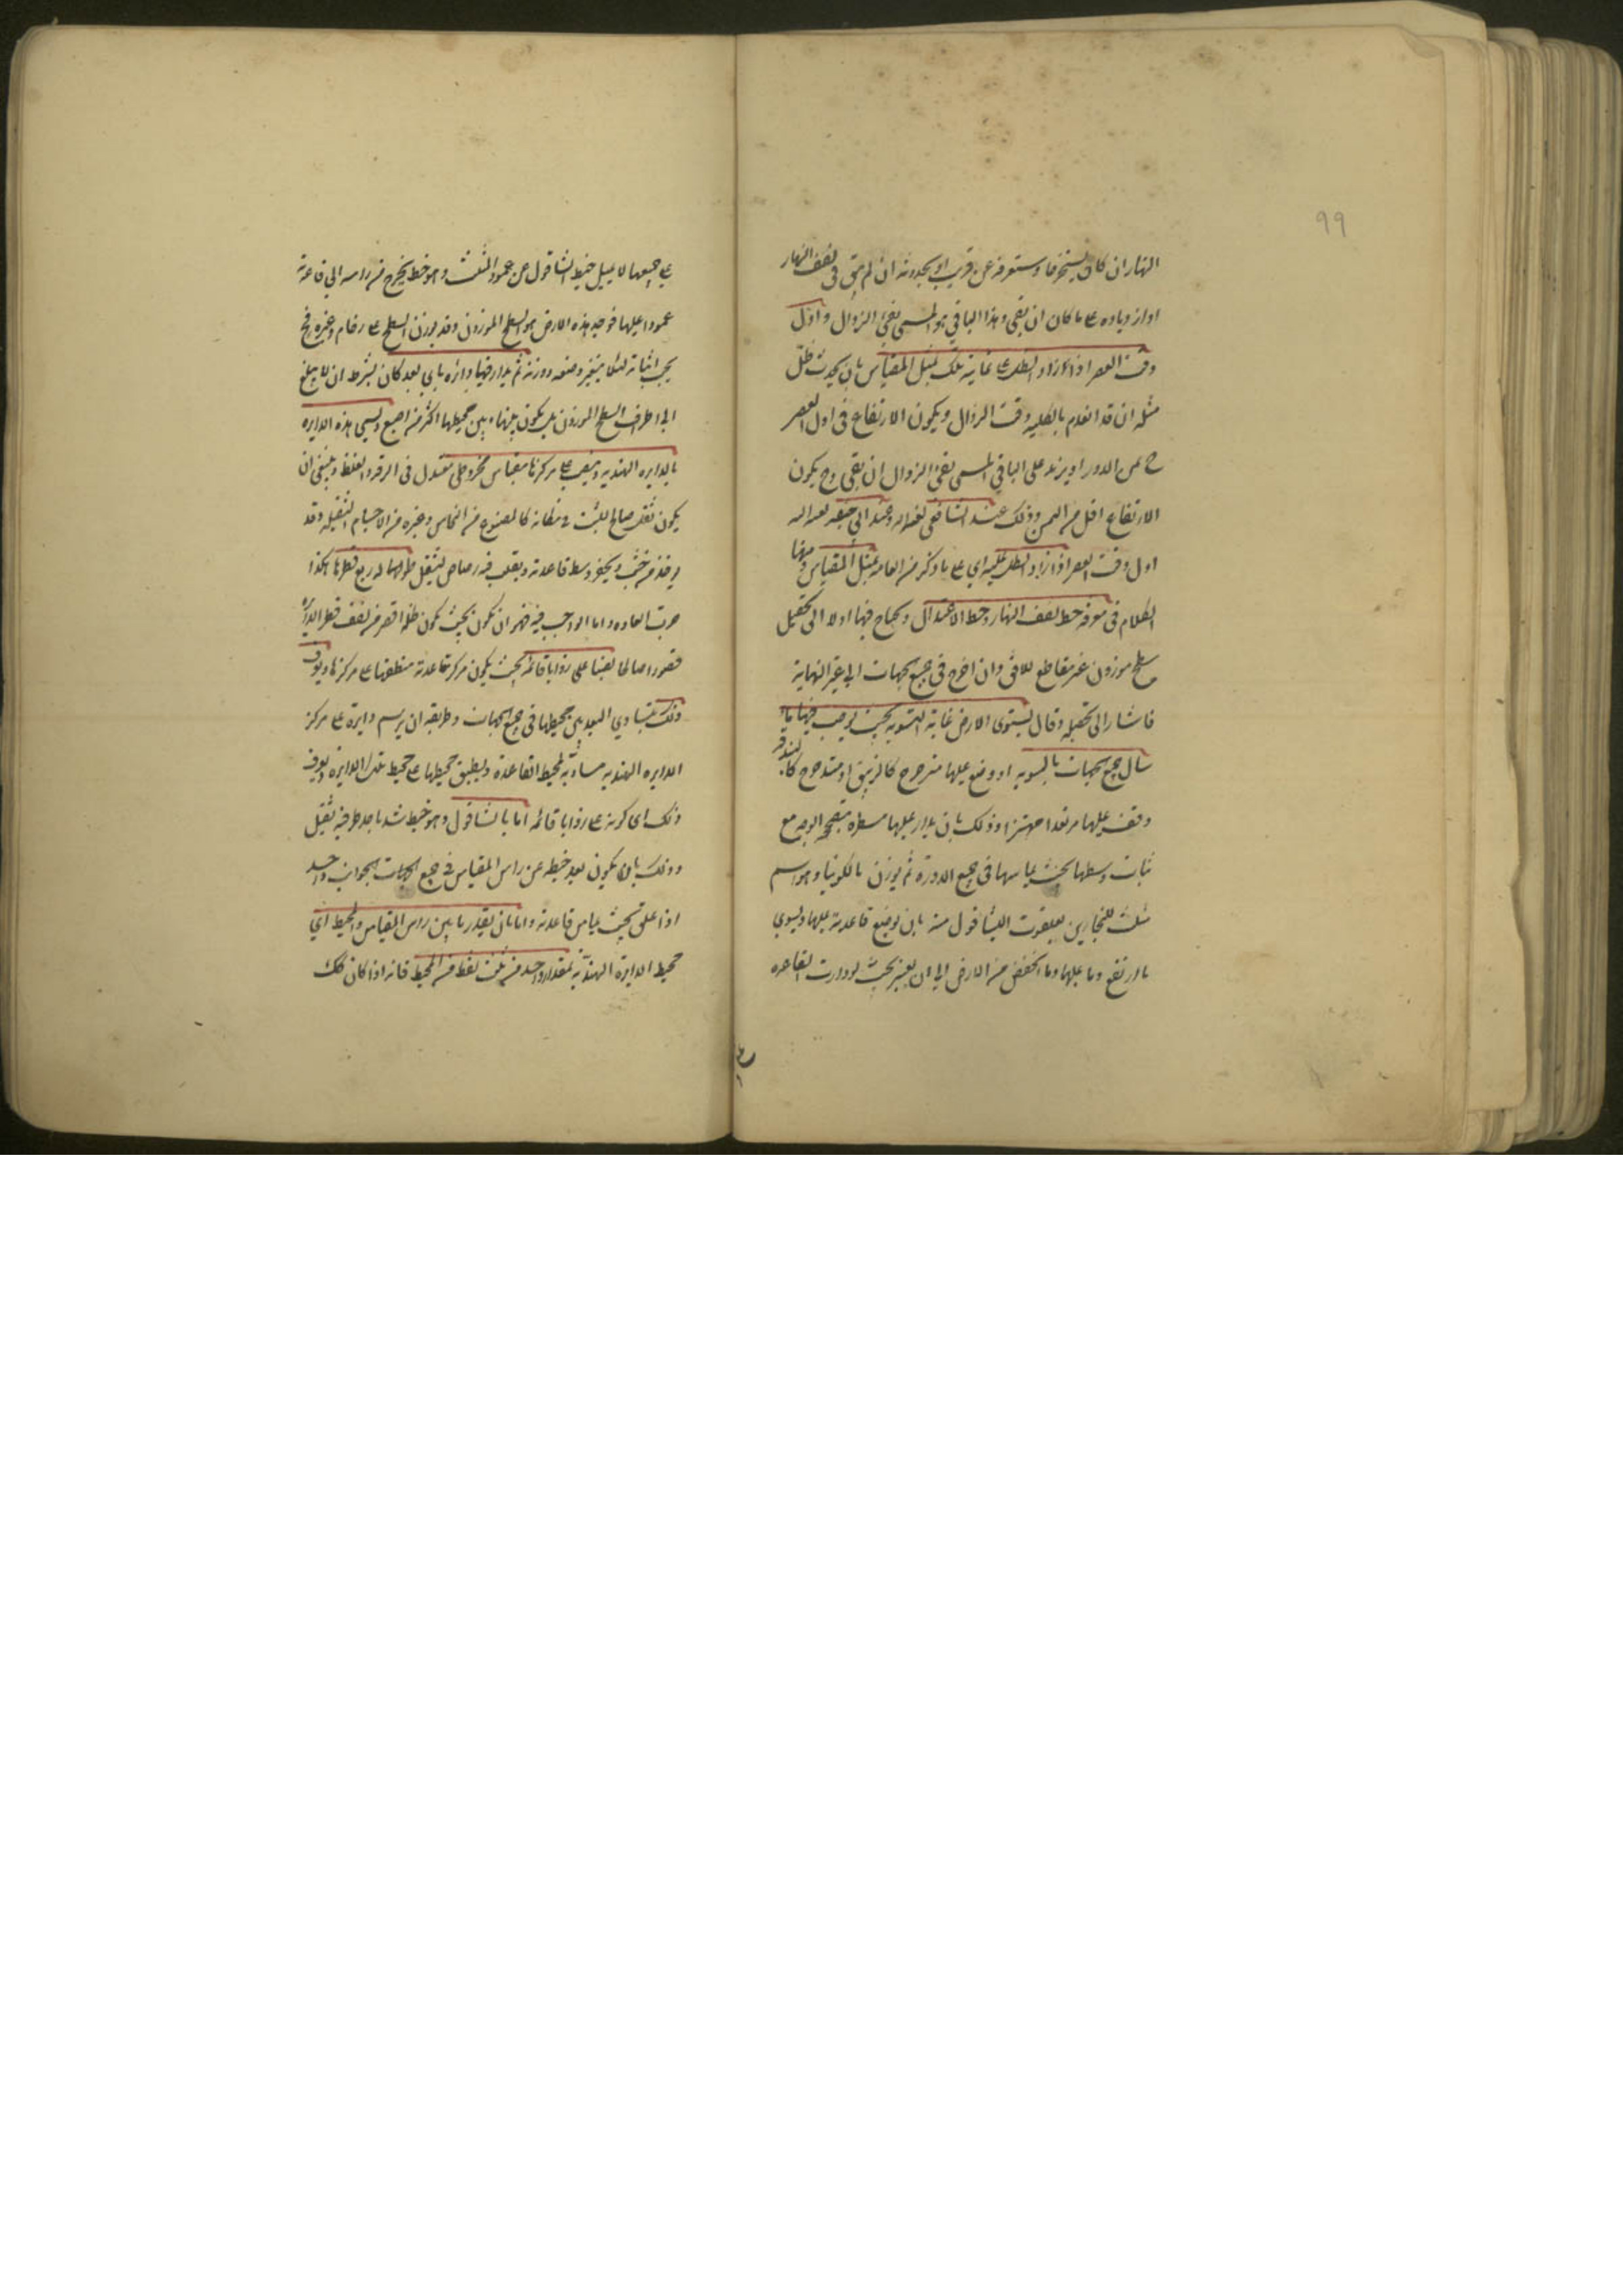 ٩٩
النهار ان كان مستخرجا وستعرفه عن قريب او بحدوثه ان لم يبق في نصف النهار
او ازدياده على ما كان ان بقي وهذا الباقي هو المسمى بفئ الزوال واول
وقت العصر اذا ازداد الظل على غايته تلك بمثل المقياس بان يحدث ظل
مثله ان قد انعدم بالكلية وقت الزوال ويكون الارتفاع في اول العصر
ح ثمن الدور او يزيد على الباقي المسمى بفئ الزوال ان بقي وح يكون
الارتفاع اقل من الثمن وذلك عند الشافعي وعند ابي حنيفه
اول وقت العصر اذا ازداد الظل عليه اي على ما ذكر من الغايه بمثلي المقياس
الكلام في معرفة خط نصف النهار وخط الاعتدال ويحتاج فيها اولا الى تحصيل
سطح موزون غير مقاطع للافق وان اخرج في جميع الجهات الى غير النهاية
فاشار الى تحصيله وقال يستوى الارض غاية التسوية بحيث لو صب فيها ماء
سال جميع الجهات بالسوية او وضع عليها مترجرج كالزيبق او متدحرج كالبندقة
وقف عليها مرتعدا مهتزا وذلك بان يدار عليها مسطرة مصححة الوجه مع
ثبات وسطها بحيث يماسها في جميع الدورة ثم يوزن بالكونيا وهو اسم
مثلث للنجارين بعد الشاقول منه بان يوضع قاعدته عليها ويسوي
ما ارتفع وما عليها وما انخفض من الارض الى ان يصير بحيث لو دارت القاعده
على جميعها لا يميل خيط الشاقول عن عمود المثلث وهو خط يخرج من راسه الى قاعدته
عمودا عليها فوجه هذه الارض هو السطح الموزون وقد يوزن السطح على رخام وغيره فح
يجب اثباته لئلا يتغير وضعه ووزنه ثم يدار فيها دائرة باي بعد كان بشرط ان لا يبلغ
الى اطراف السطح الموزون بل يكون بينها وبين محيطها اكثر من اصبع وتسمى هذه الدايره
بالدايره الهنديه وينصب على مركزها مقياس مخروطي معتدل في الدقه والغلظ وينبغي ان
يكون ثقله صالحا ليثبت في مكانه كالمصنوع من النحاس وغيره من الاجسام الثقيلة وقد
يوخذ من خشب ويحفر وسط قاعدته ويصب فيه رصاص ليثقل طولها له ربع قطرها هكذا
جرت العاده واما الواجب فيه فهو ان يكون بحيث يكون ظله اقصر من نصف قطر الدائرة
قصورا صالحا نصبا على زوايا قائمة بحيث يكون مركز قاعدته منطبقا على مركزها ويعرف
ذلك بتساوي البعد بين محيطها في جميع الجهات وطريقه ان يرسم دايرة على مركز
الدايره الهنديه مساوية لمحيط القاعدة ويطبق محيطها على محيط تلك الدايرة ويعرف
ذلك اي كونه على زوايا قائمه اما بالشاقول وهو خيط شد باحد طرفيه ثقيل
وذلك بان يكون بعد خيطه عن راس المقياس في جميع الجهات الجوانب واحد
اذا علق بحيث يماس قاعدته واما بان يقدر ما بين راس المقياس والمحيط اي
محيط الدايرة الهندية بمقدار واحد من ثلث نقط من المحيط فانه اذا كان كذلك